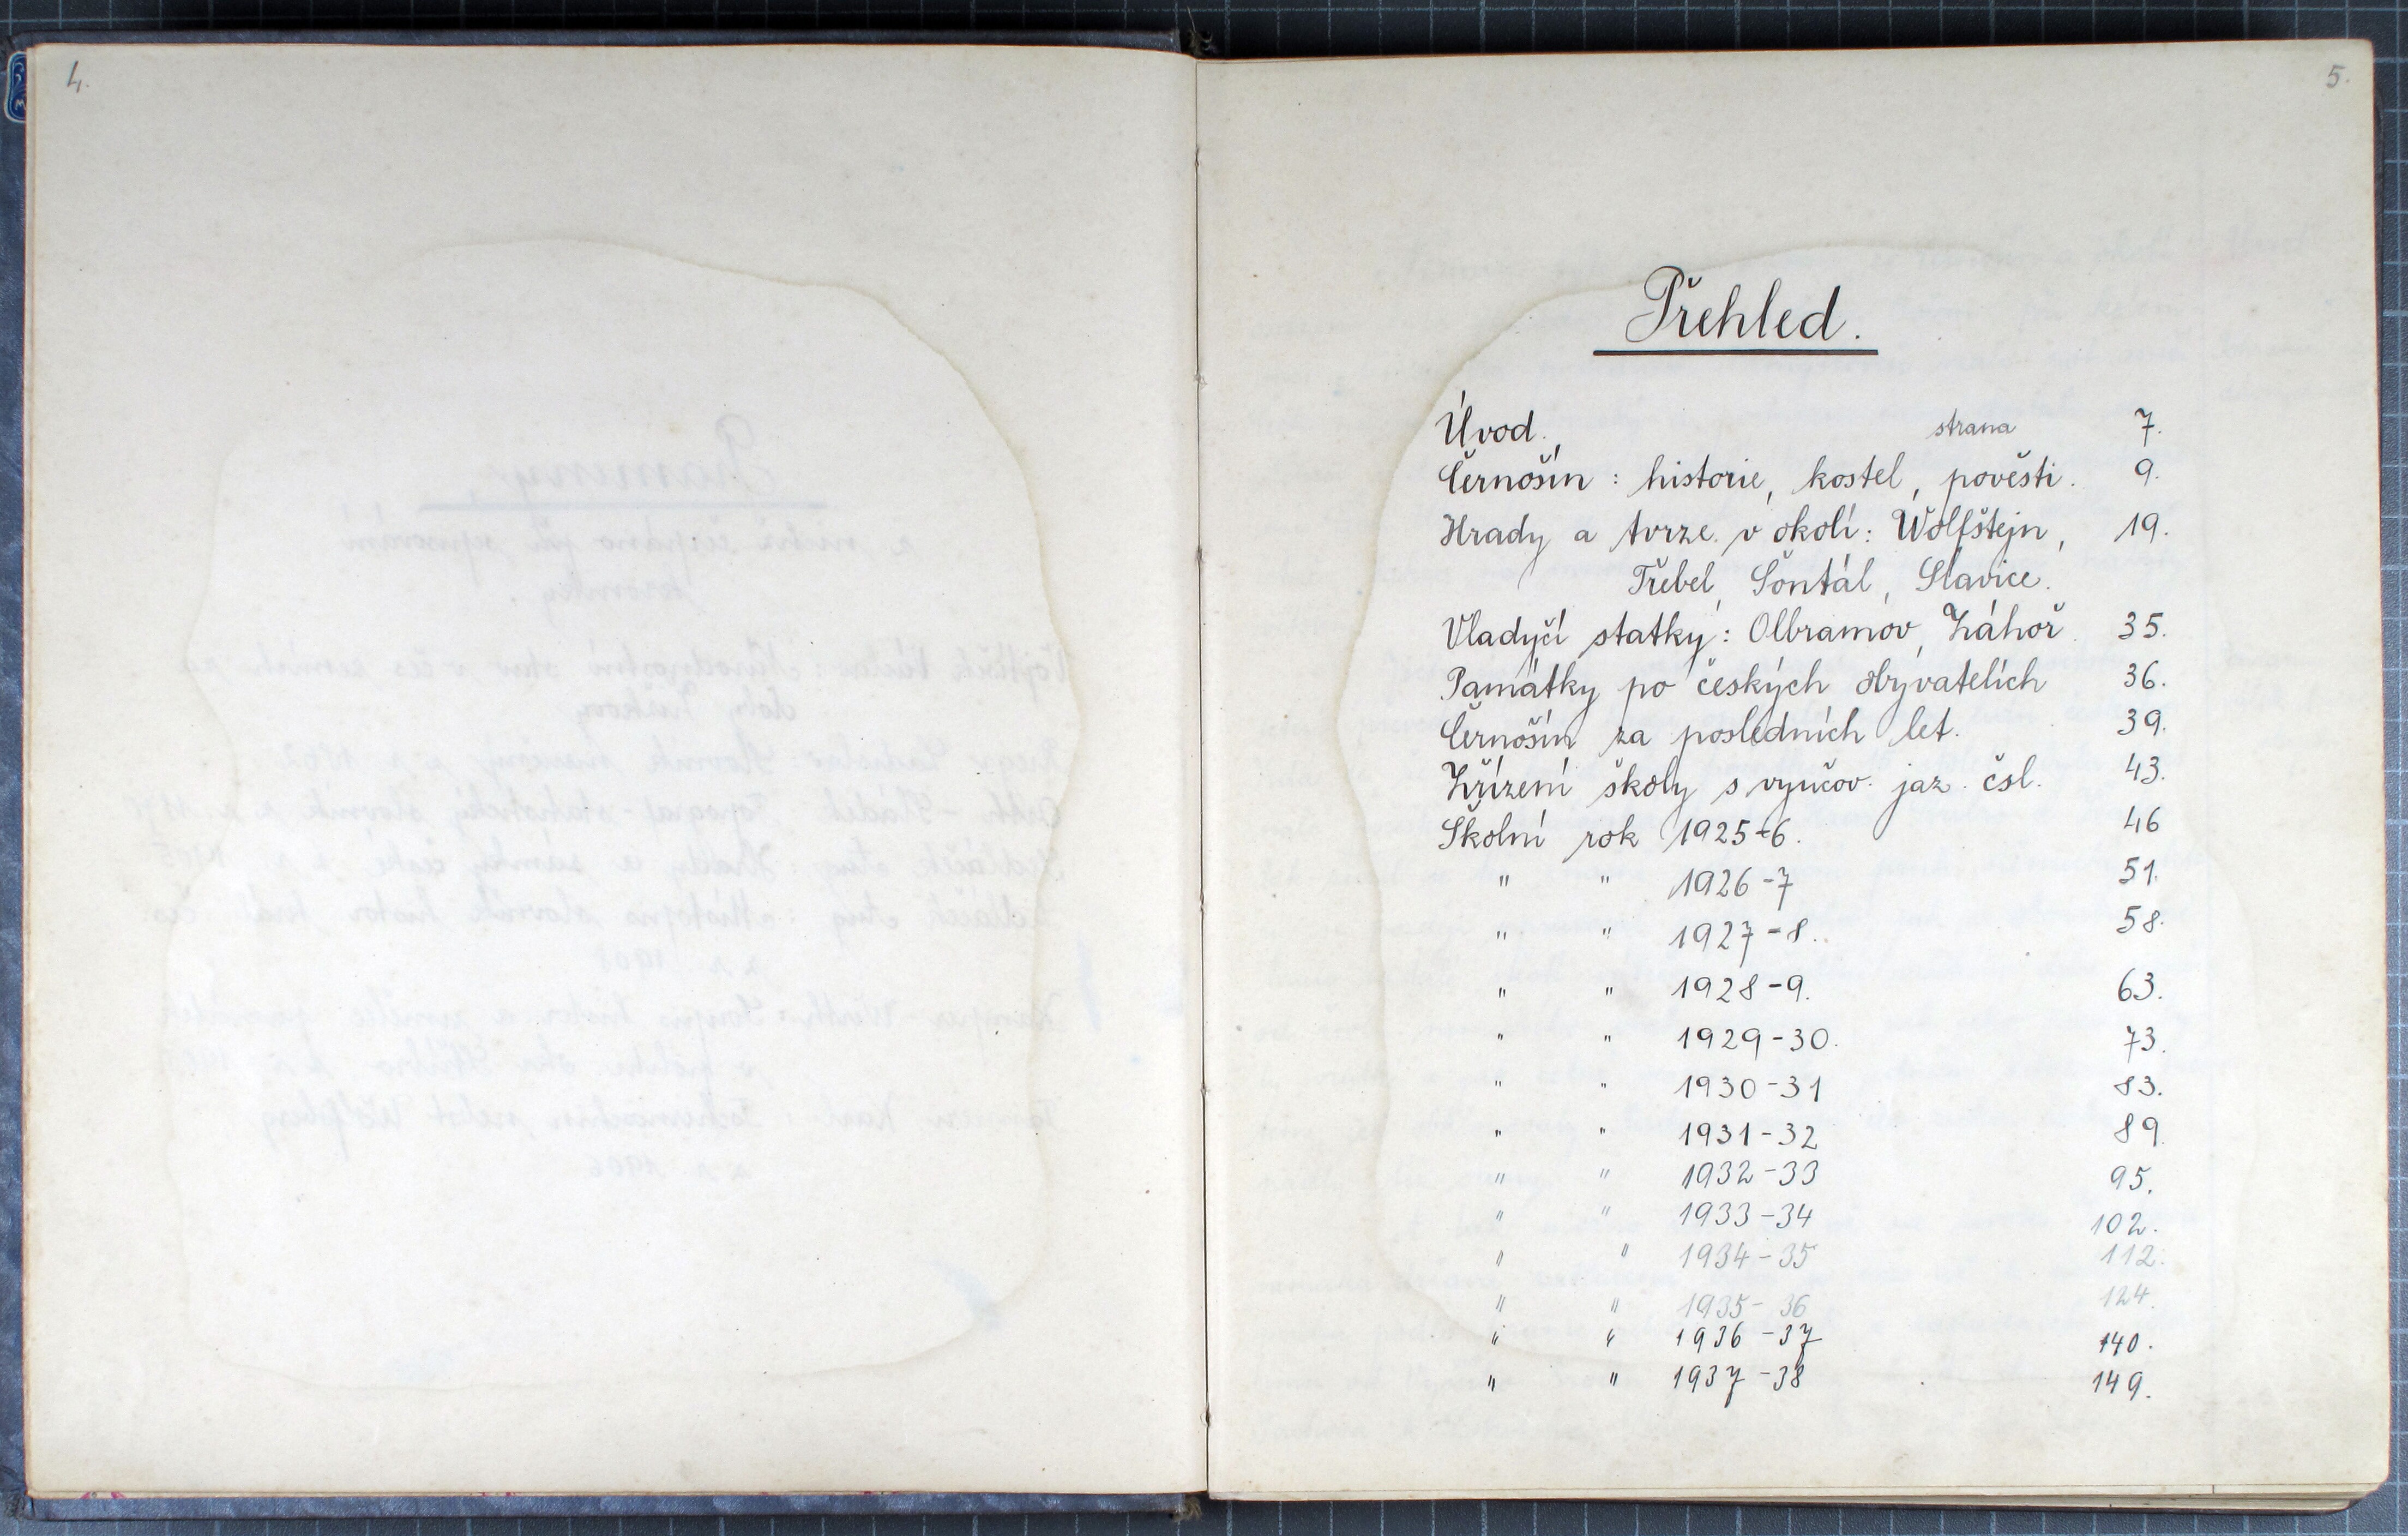 4.
5.
Přehled.
Úvod. strana 7.
Černošín : historie, kostel, pověsti. 9.
Hrady a tvrze v okolí: Wolfštejn, 19.
Třebel, Šontál, Slavice.
Vladyčí statky: Olbramov, Záhoř 35.
Památky po českých obyvatelích 36.
Černošín za posledních let. 39.
Zřízení školy s vyučov. jaz. čsl. 43.
Školní rok 1925-6. 46
" " 1926-7 51.
" " 1927-8. 58.
" " 1928-9. 63.
" " 1929-30. 73.
" " 1930-31 83.
" " 1931-32 89.
" " 1932-33 95.
" " 1933-34 102.
" " 1934-35 112.
" " 1935-36 124.
" " 1936-37 140.
" " 1937-38 149.